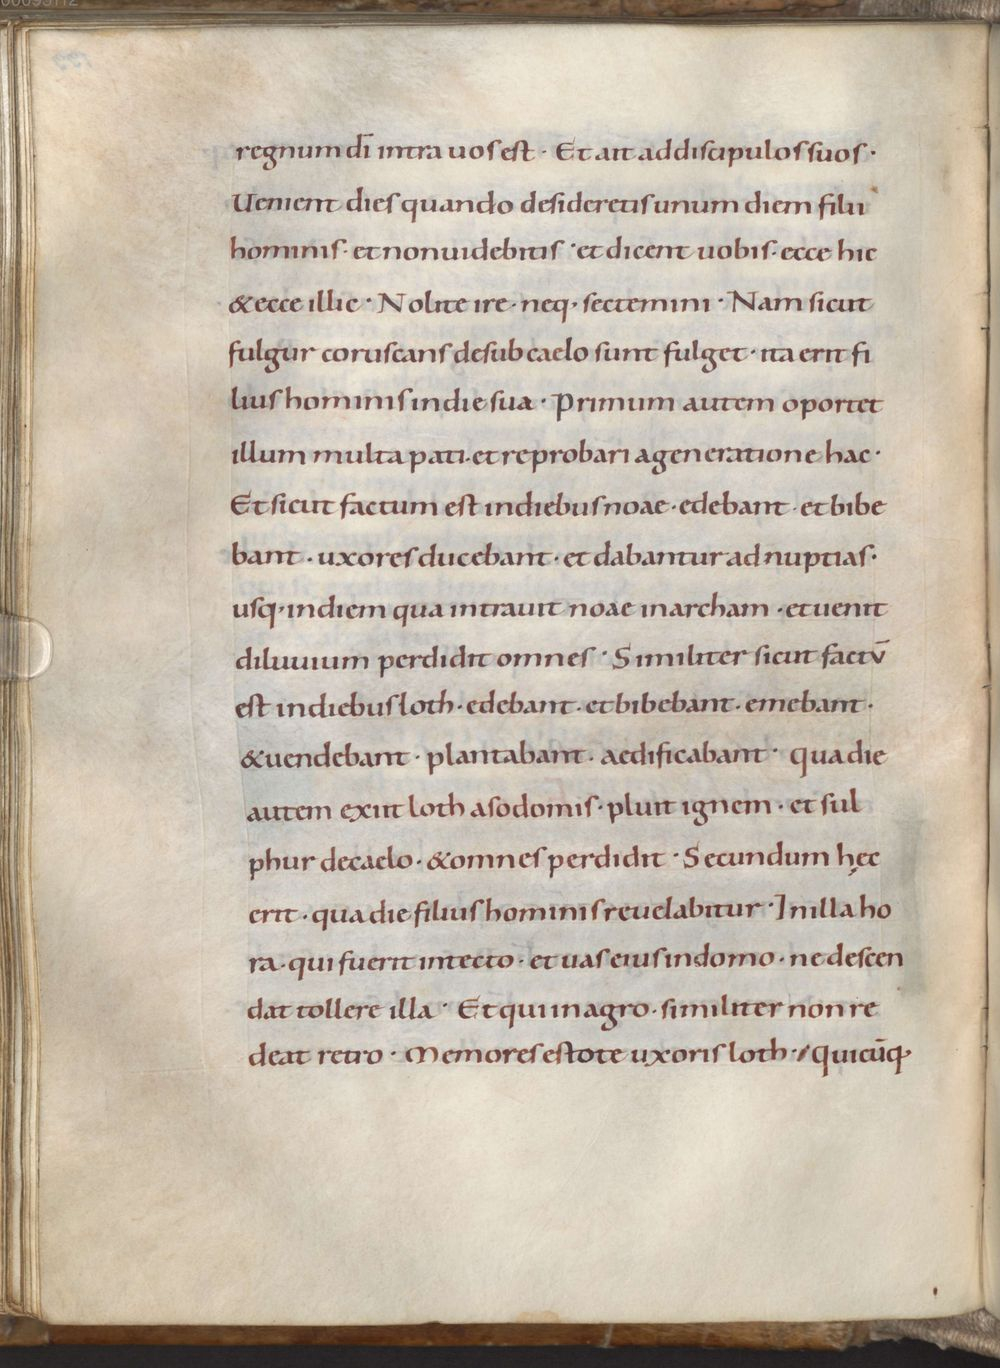 regnum dī intra uos est · Et ait ad discipulos suos ·
Uenient dies quando desideretis unum diem filii
hominis · et non uidebitis · et dicent uobis · ecce hic
& ecce illic · Nolite ire · neq· sectemini · Nam sicut
fulgur coruscans de sub caelo sunt fulget · ita erit fi
lius hominis in die sua · Primum autem oportet
illum multa pati · et reprobari a generatione hac ·
Et sicut factum est in diebus noae · edebant · et bibe
bant · uxores ducebant · et dabantur ad nuptias ·
usq· in diem qua intrauit noae in archam · et uenit
diluuium perdidit omnes · Similiter sicut factū
est in diebus loth · edebant · et bibebant · emebant ·
& uendebant · plantabant · aedificabant · qua die
autem exiit loth a sodomis · pluit ignem · et sul
phur de caelo · & omnes perdidit · Secundum hęc
erit · qua die filius hominis reuelabitur · In illa ho
ra · qui fuerit in tecto · et uas eius in domo · ne descen
dat tollere illa · Et qui in agro · similiter non re
deat retro · Memores estote uxoris loth · / quicūq·